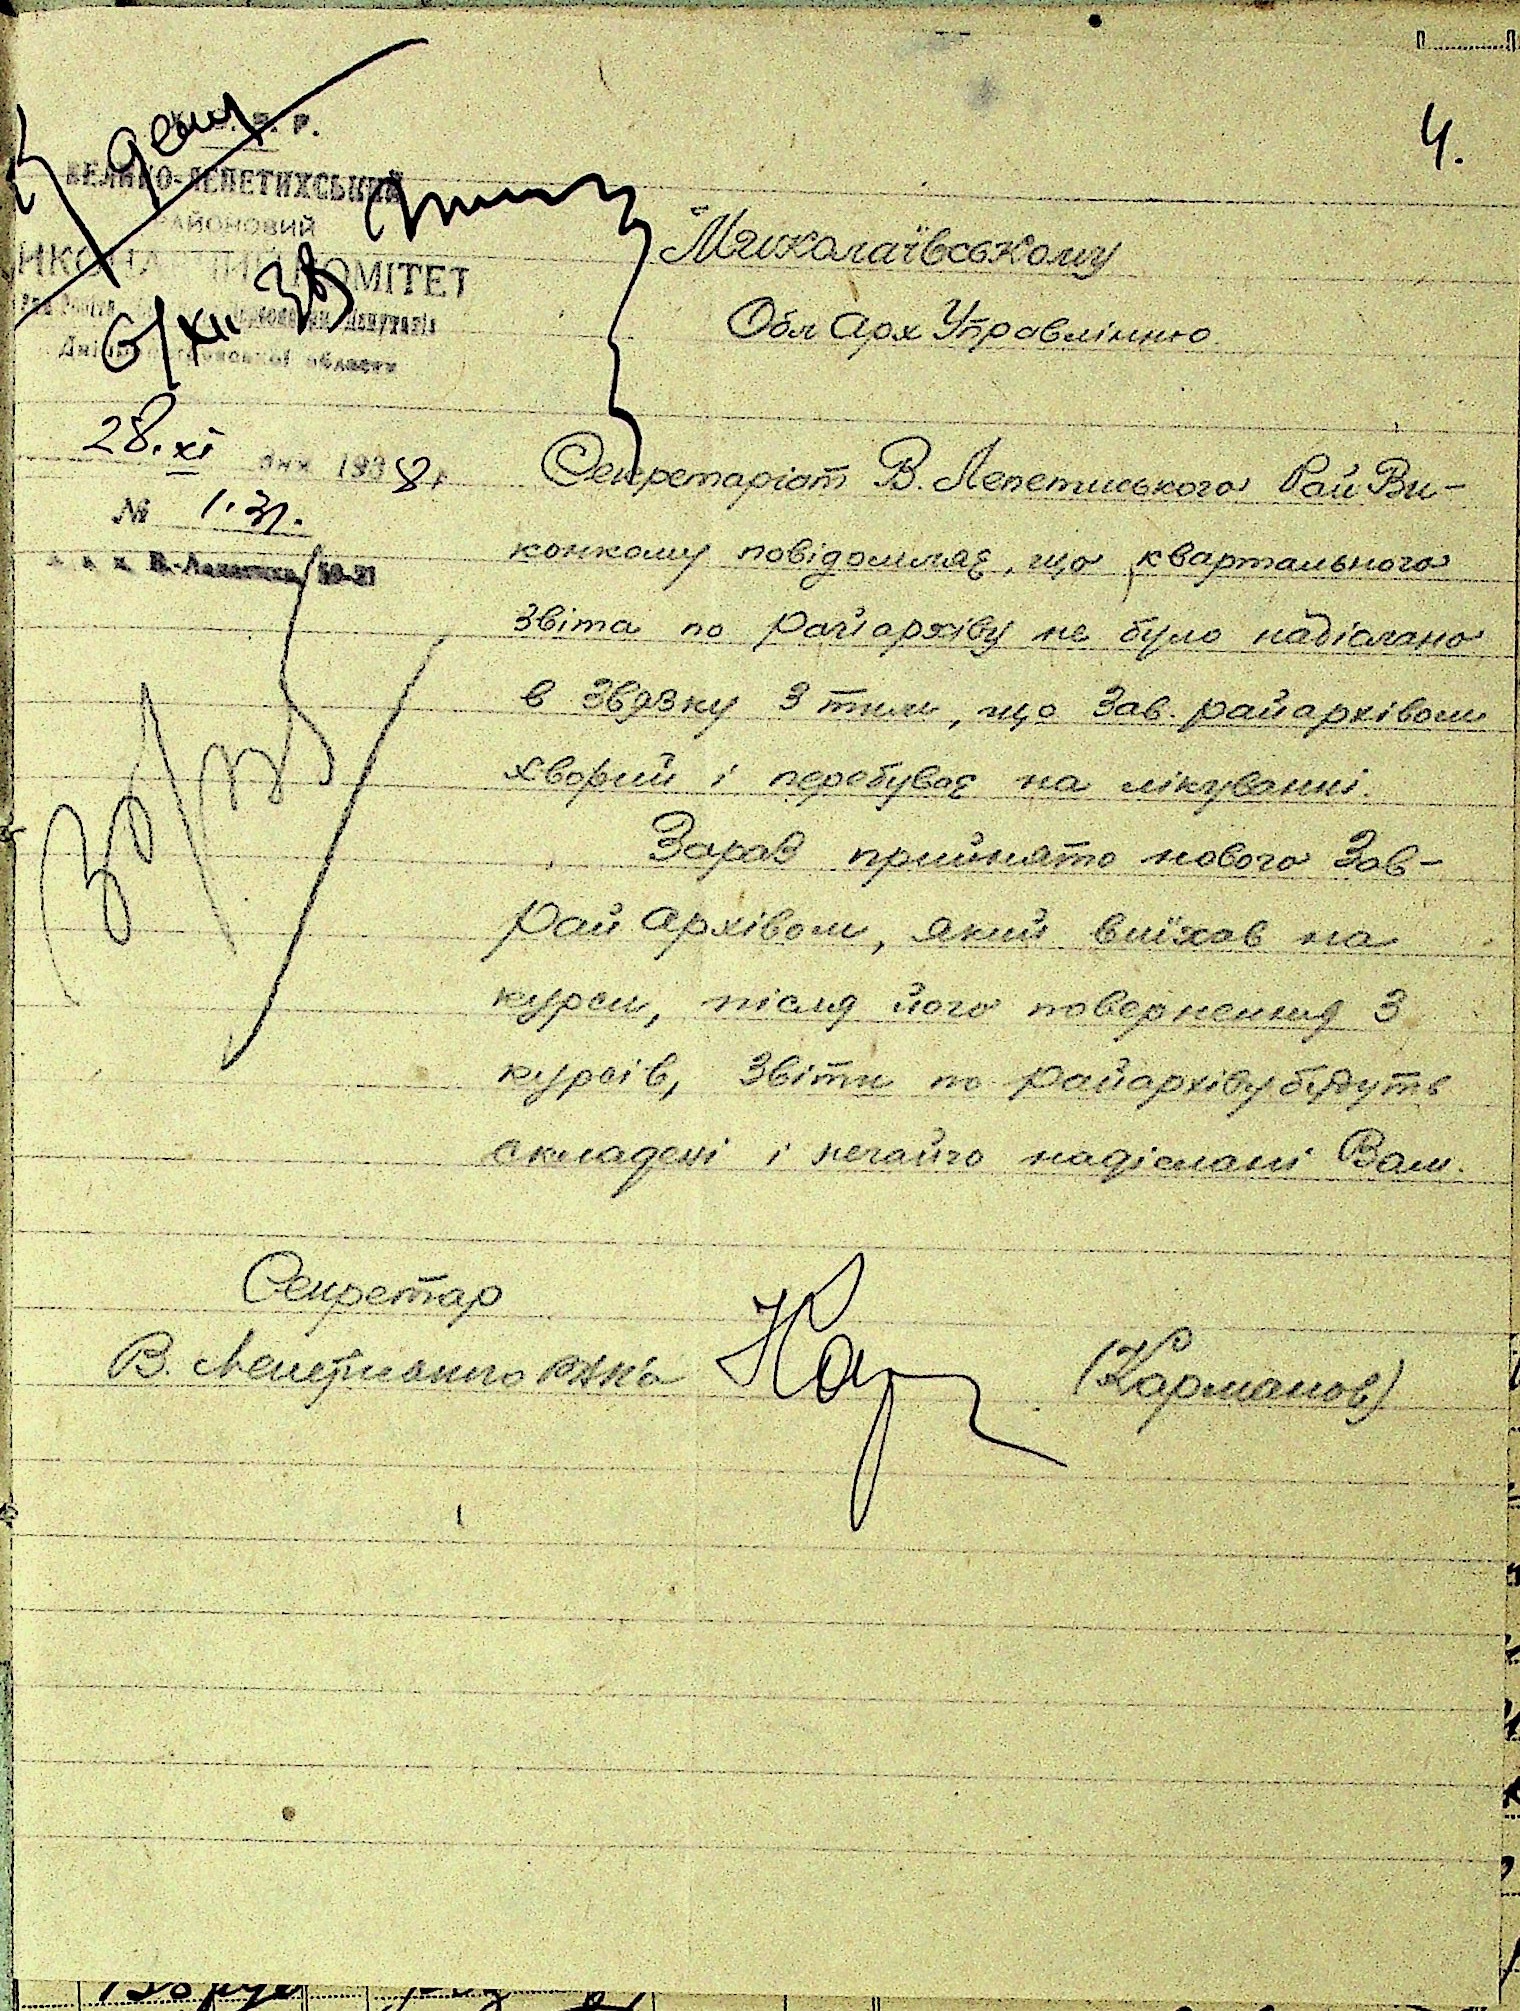 4.
В делу
6/XII 38
У.С.Р.Р.
ВЕЛИКО-ЛЕПЕТИХСЬКИЙ
РАЙОНОВИЙ
ВИКОНАВЧИЙ КОМІТЕТ
Дніпропетровської області
28.XI дня 1938 р.
№ 1.31.
В.-Лепетиха
Миколаївському
Обл Арх Управлінню
Секретаріат В. Лепетиського Рай Ви-
конкому повідомляє, що квартального
звіта по райархіву не було надіслано
в звязку з тим, що зав. райархівом
хворий і перебуває на лікуванні.
Зараз прийнято нового Зав-
Рай Архівом, який виїхав на
курси, після його повернення з
курсів, звіти по райархіву будуть
складені і негайно надіслані Вам.
Секретар
В. Лепетиського РВК'а
(Карманов)